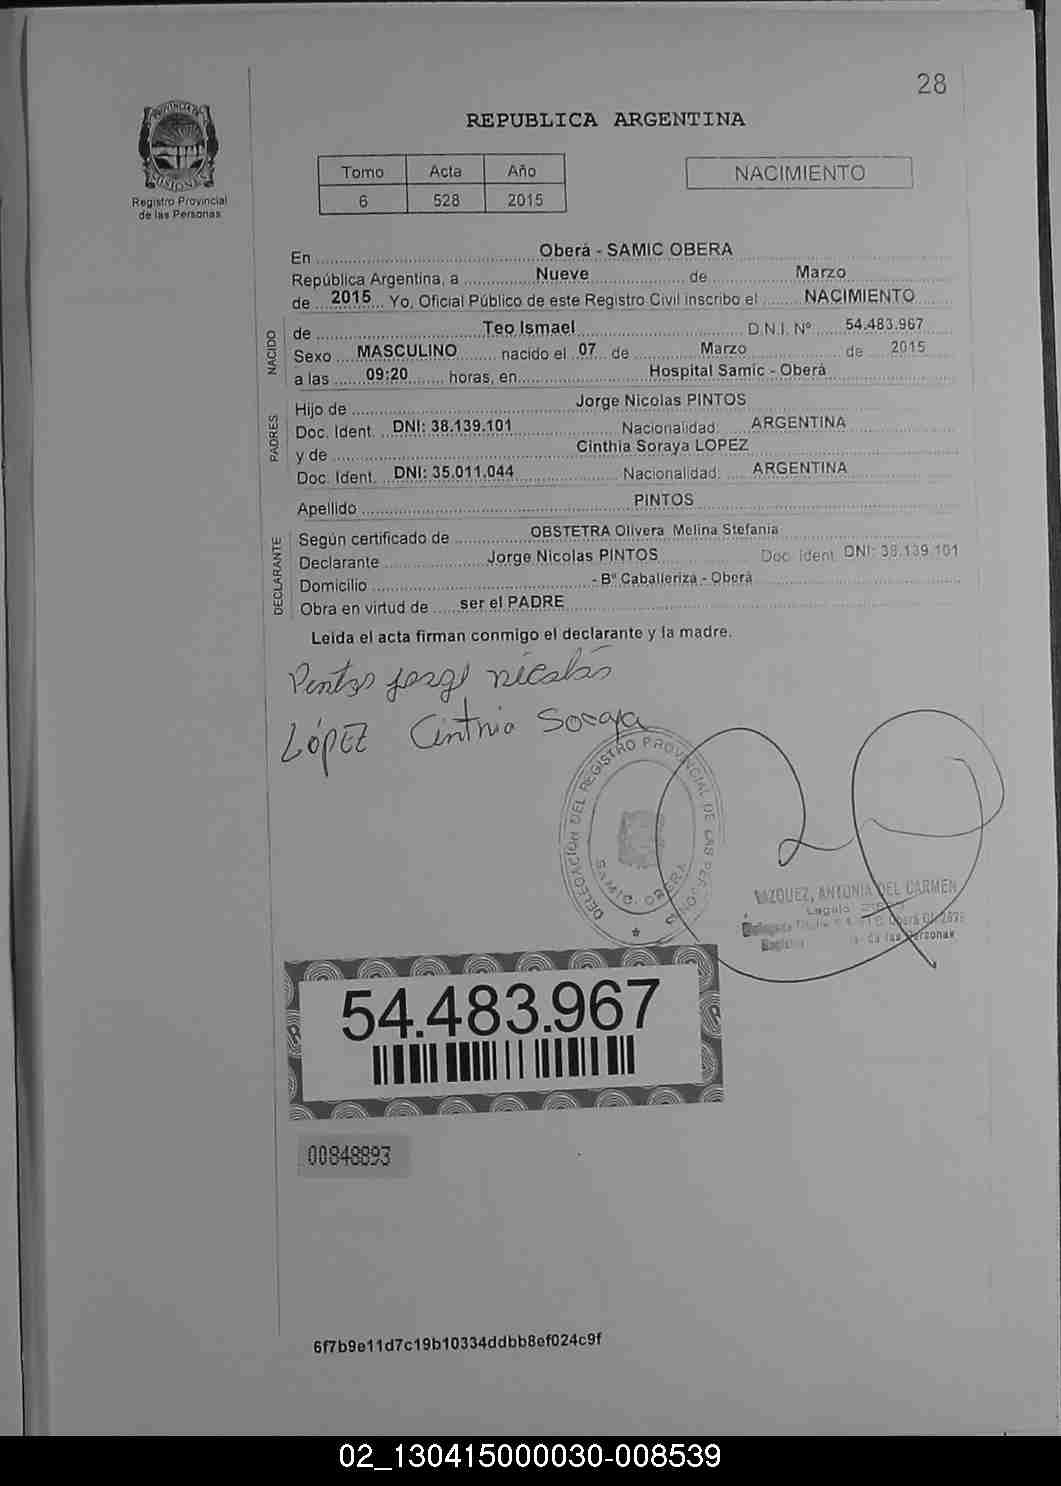 28
PROVINCIA DE
MISIONES
Registro Provincial
de las Personas
REPUBLICA ARGENTINA
Tomo Acta Año
6 528 2015
NACIMIENTO
En Oberá - SAMIC OBERA
República Argentina, a Nueve de Marzo
de 2015 Yo, Oficial Público de este Registro Civil inscribo el NACIMIENTO
NACIDO
de Teo Ismael D.N.I. Nº 54.483.967
Sexo MASCULINO nacido el 07 de Marzo de 2015
a las 09:20 horas, en Hospital Samic - Oberá
PADRES
Hijo de Jorge Nicolas PINTOS
Doc. Ident. DNI: 38.139.101 Nacionalidad: ARGENTINA
y de Cinthia Soraya LOPEZ
Doc. Ident. DNI: 35.011.044 Nacionalidad: ARGENTINA
Apellido PINTOS
DECLARANTE
Según certificado de OBSTETRA Olivera Melina Stefania
Declarante Jorge Nicolas PINTOS Doc. Ident. DNI: 38.139.101
Domicilio - Bº Caballeriza - Oberá
Obra en virtud de ser el PADRE
Leida el acta firman conmigo el declarante y la madre.
Pintos jorge nicolás
LÓPEZ Cinthia Soraya
DELEGACION DEL REGISTRO PROVINCIAL DE LAS PERSONAS
SAMIC. OBERA
VAZQUEZ, ANTONIA DEL CARMEN
Legajo
Oberá
de las Personas
54.483.967
00848893
6f7b9e11d7c19b10334ddbb8ef024c9f
02_130415000030-008539